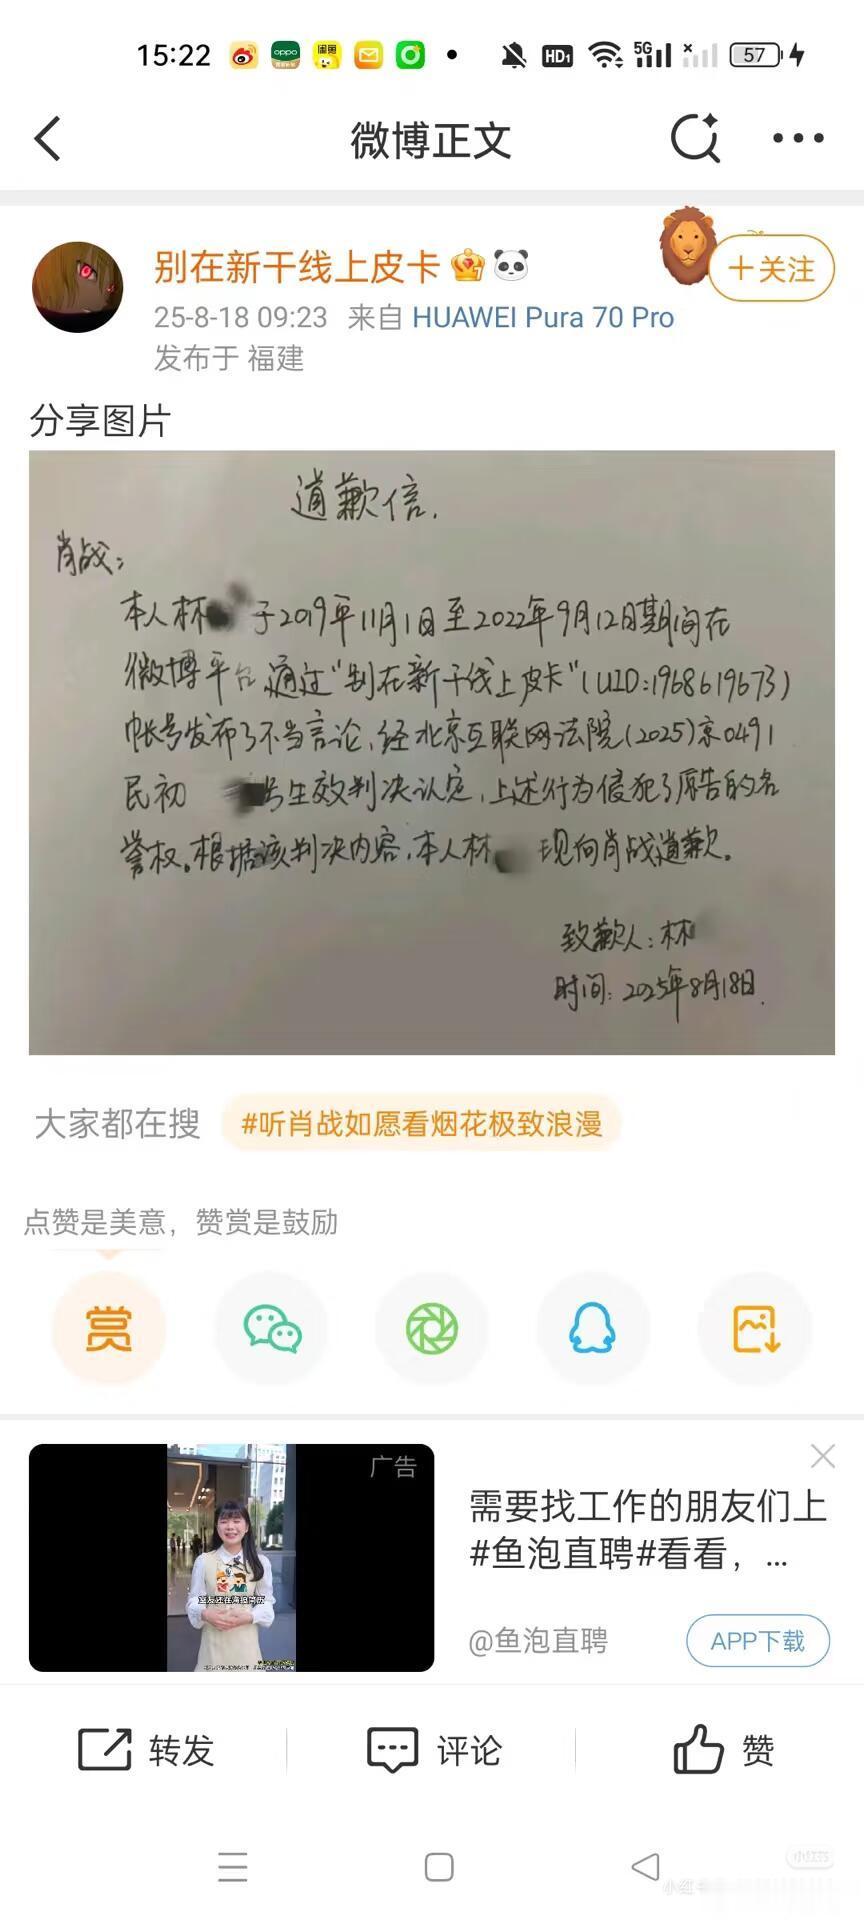 15:22
HD1
5G
57
微博正文
别在新干线上皮卡
+关注
25-8-18 09:23 来自 HUAWEI Pura 70 Pro
发布于 福建
分享图片
道歉信.
肖战:
本人林 于2019年11月1日至2022年9月12日期间在
微博平台通过"别在新干线上皮卡"(UID:1968619673)
帐号发布了不当言论,经北京互联网法院(2025)京0491
民初 号生效判决认定,上述行为侵犯了原告的名
誉权。根据该判决内容,本人林 现向肖战道歉。
致歉人:林
时间:2025年8月18日.
大家都在搜 #听肖战如愿看烟花极致浪漫
点赞是美意,赞赏是鼓励
赏
广告
需要找工作的朋友们上
#鱼泡直聘#看看,...
@鱼泡直聘
APP下载
转发
评论
赞
小红书